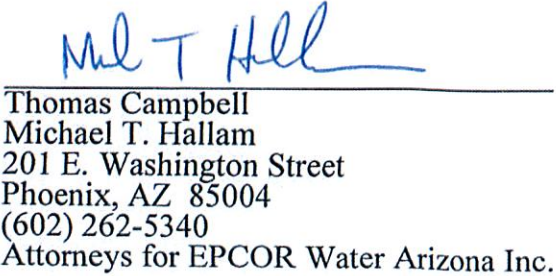 Mul T Hall
Thomas Campbell
Michael T. Hallam
201 E. Washington Street
Phoenix, AZ  85004
(602) 262-5340
Attorneys for EPCOR Water Arizona Inc.